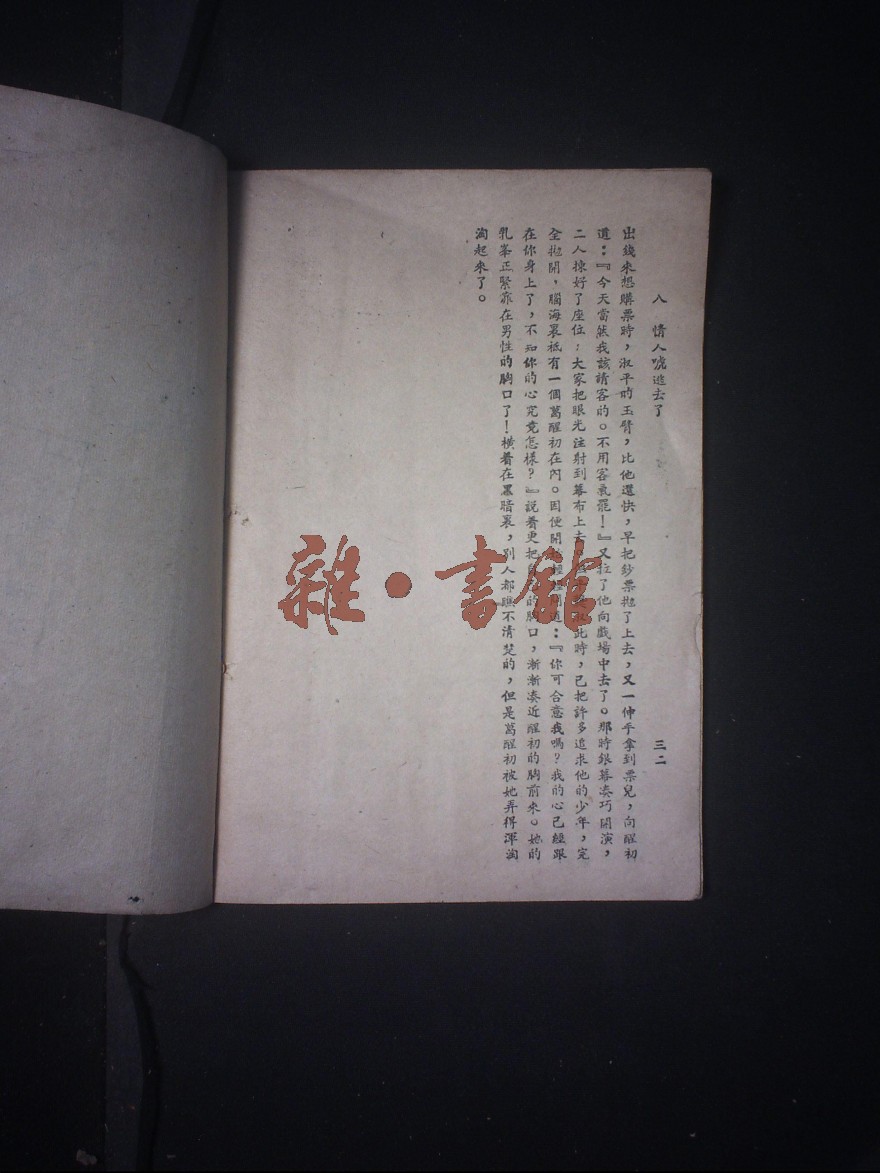 八　情人唬進去了
三二
出幾來想購票時，淑平的玉臂，比他還快，早把鈔票拋了上去，又一伸手拿到票兒，向醒初
道：『今天當然我該請客的。不用客氣罷！』又拉了他向戲場中去了。那時銀幕湊巧開演，
二人揀好了座位：大家把眼光注射到幕布上去 此時，已把許多追求他的少年，完
全拋開，腦海裏祇有一個葛醒初在內。因便開 道：『你可合意我嗎？我的心已經跟
在你身上了，不知你的心究竟怎樣？』說着更把 的胸口，漸漸湊近醒初的胸前來。她的
乳峯正緊靠在男性的胸口了！橫着在黑暗裏，別人都瞧不清楚的，但是葛醒初被她弄得渾淘
淘起來了。
雜·書館